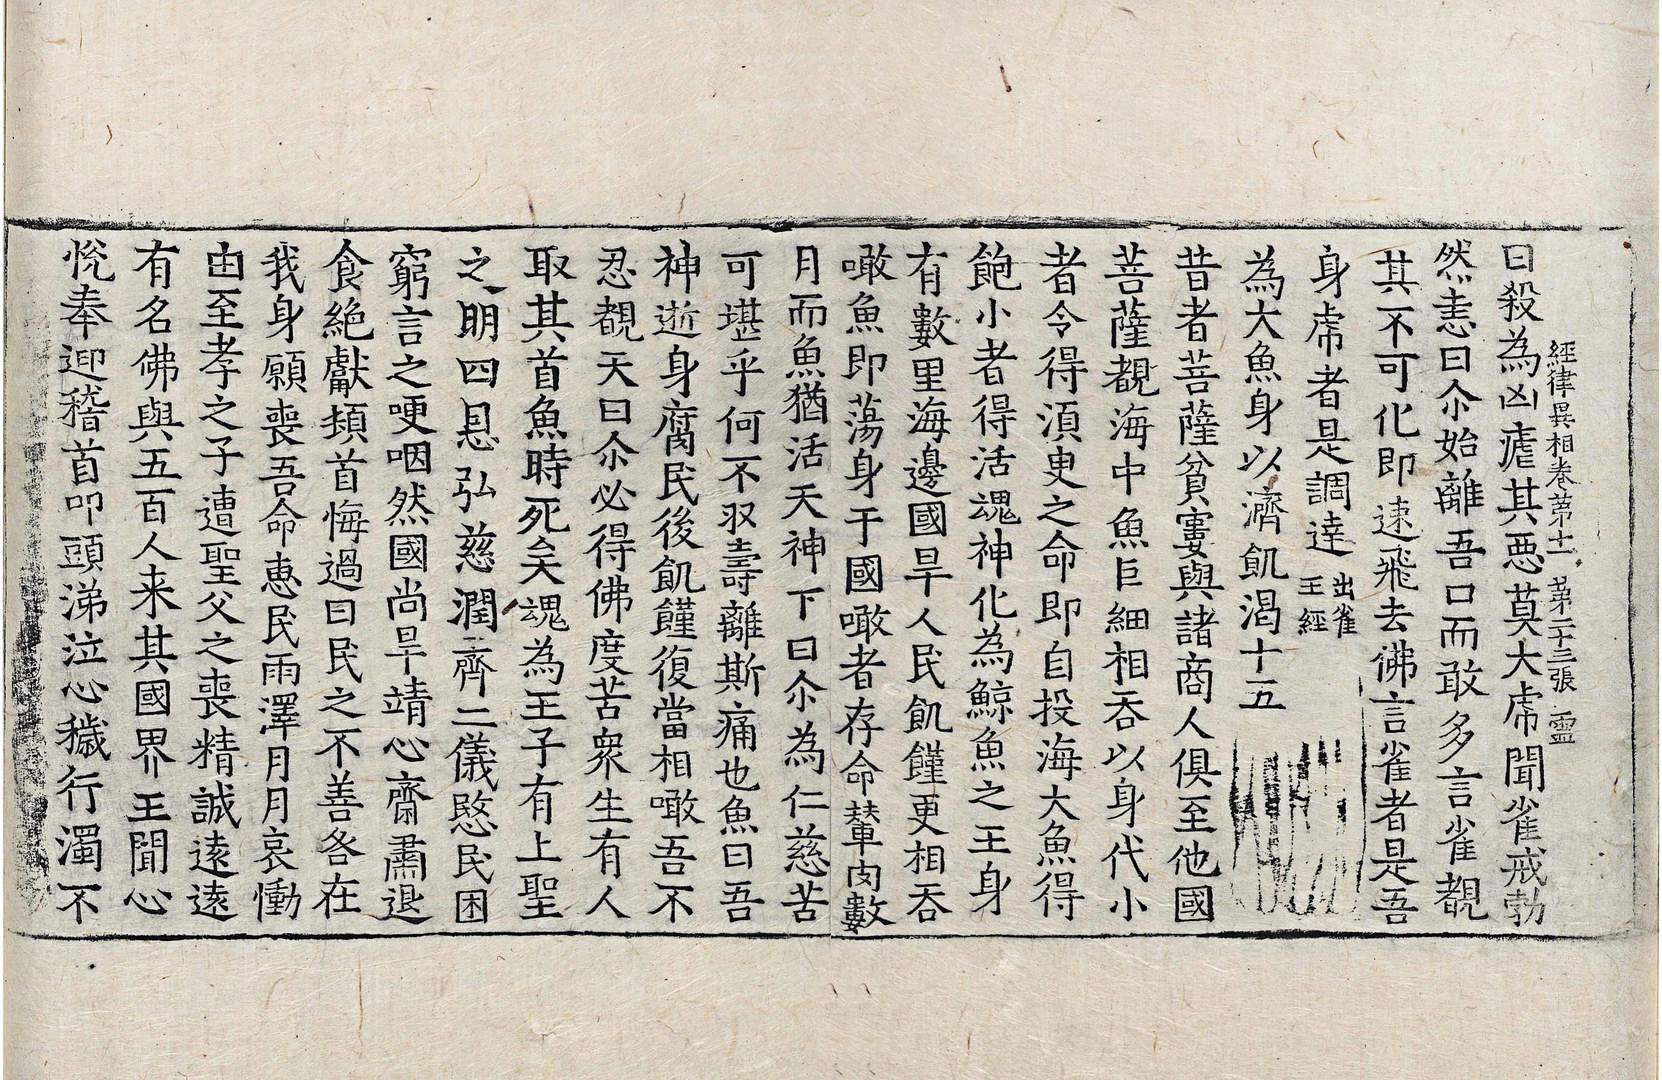 經律異相卷苐十一 苐二十三張 靈
曰殺為凶虐其惡莫大虎聞雀戒勃
然恚曰尒始離吾口而敢多言雀覩
其不可化即速飛去佛言雀者是吾
身虎者是調達 出雀王經
為大魚身以濟飢渴十五
昔者菩薩貧窶與諸商人俱至他國
菩薩覩海中魚巨細相吞以身代小
者令得須臾之命即自投海大魚得
飽小者得活魂神化為鯨魚之王身
有數里海邊國旱人民飢饉更相吞
噉魚即蕩身于國噉者存命輦肉數
月而魚猶活天神下曰尒為仁慈苦
可堪乎何不㕛壽離斯痛也魚曰吾
神逝身腐民後飢饉復當相噉吾不
忍覩天曰尒必得佛度苦衆生有人
取其首魚時死矣魂為王子有上聖
之明四恩弘慈潤齊二儀愍民困
窮言之哽咽然國尚旱靖心齋肅退
食絶獻頓首悔過曰民之不善咎在
我身願喪吾命惠民雨澤月月哀慟
由至孝之子遭聖父之喪精誠遠遠
有名佛與五百人来其國界王聞心
恱奉迎稽首叩頭涕泣心穢行濁不